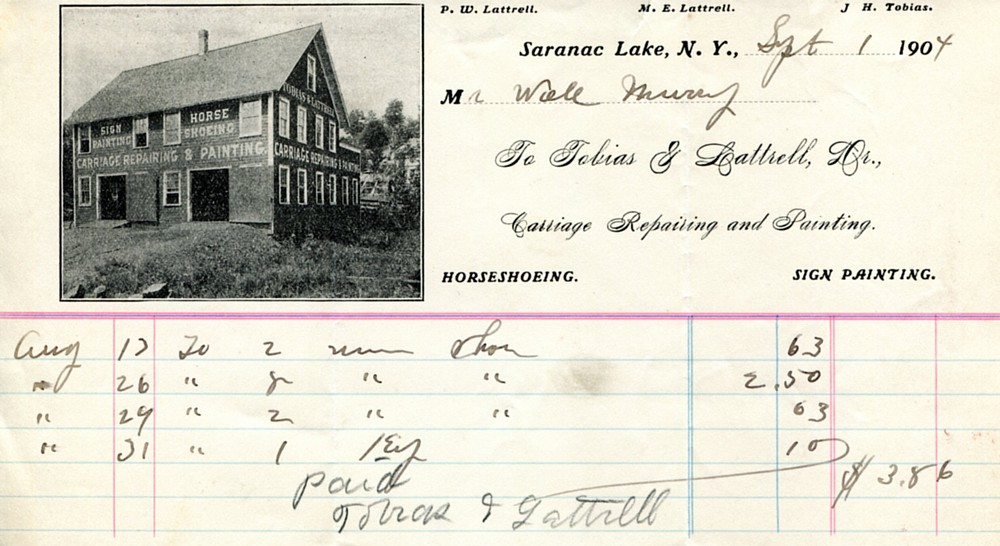 P. W. Lattrell. M. E. Lattrell. J H. Tobias.
Saranac Lake, N. Y., Spt 1 1904
Mr Murry
To Tobias & Lattrell, Dr.,
Carriage Repairing and Painting.
HORSESHOEING. SIGN PAINTING.
TOBIAS & LATTRELL
SIGN PAINTING
HORSE SHOEING
CARRIAGE REPAIRING & PAINTING.
CARRIAGE REPAIRING & PAINTING
Aug To 2 63
" 26 " 8 " " 2.50
" 29 " 2 " " 63
" 31 " 1 10
$ 3.86
paid
Tobias & Lattrell